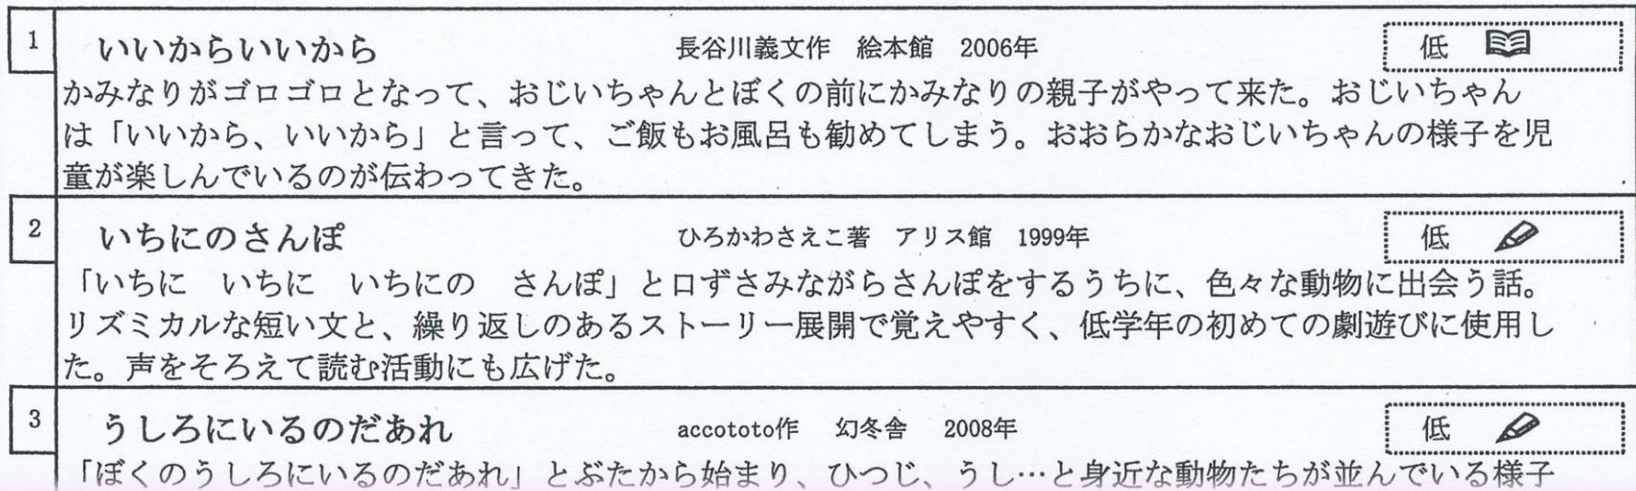 1 いいからいいから 長谷川義文作 絵本館 2006年 低
かみなりがゴロゴロとなって、おじいちゃんとぼくの前にかみなりの親子がやって来た。おじいちゃん
は「いいから、いいから」と言って、ご飯もお風呂も勧めてしまう。おおらかなおじいちゃんの様子を児
童が楽しんでいるのが伝わってきた。
2 いちにのさんぽ ひろかわさえこ著 アリス館 1999年 低
「いちに いちに いちにの さんぽ」と口ずさみながらさんぽをするうちに、色々な動物に出会う話。
リズミカルな短い文と、繰り返しのあるストーリー展開で覚えやすく、低学年の初めての劇遊びに使用し
た。声をそろえて読む活動にも広げた。
3 うしろにいるのだあれ accototo作 幻冬舎 2008年 低
「ぼくのうしろにいるのだあれ」とぶたから始まり、ひつじ、うし…と身近な動物たちが並んでいる様子